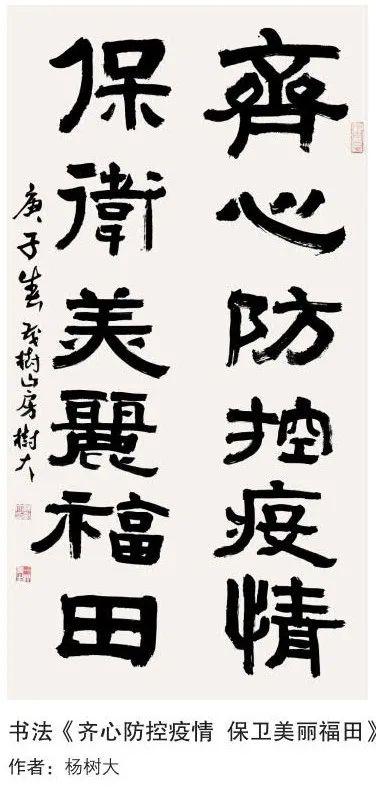 齊心防控疫情
保衛美麗福田
庚子春茂樹山房樹大
书法《齐心防控疫情 保卫美丽福田》
作者：杨树大